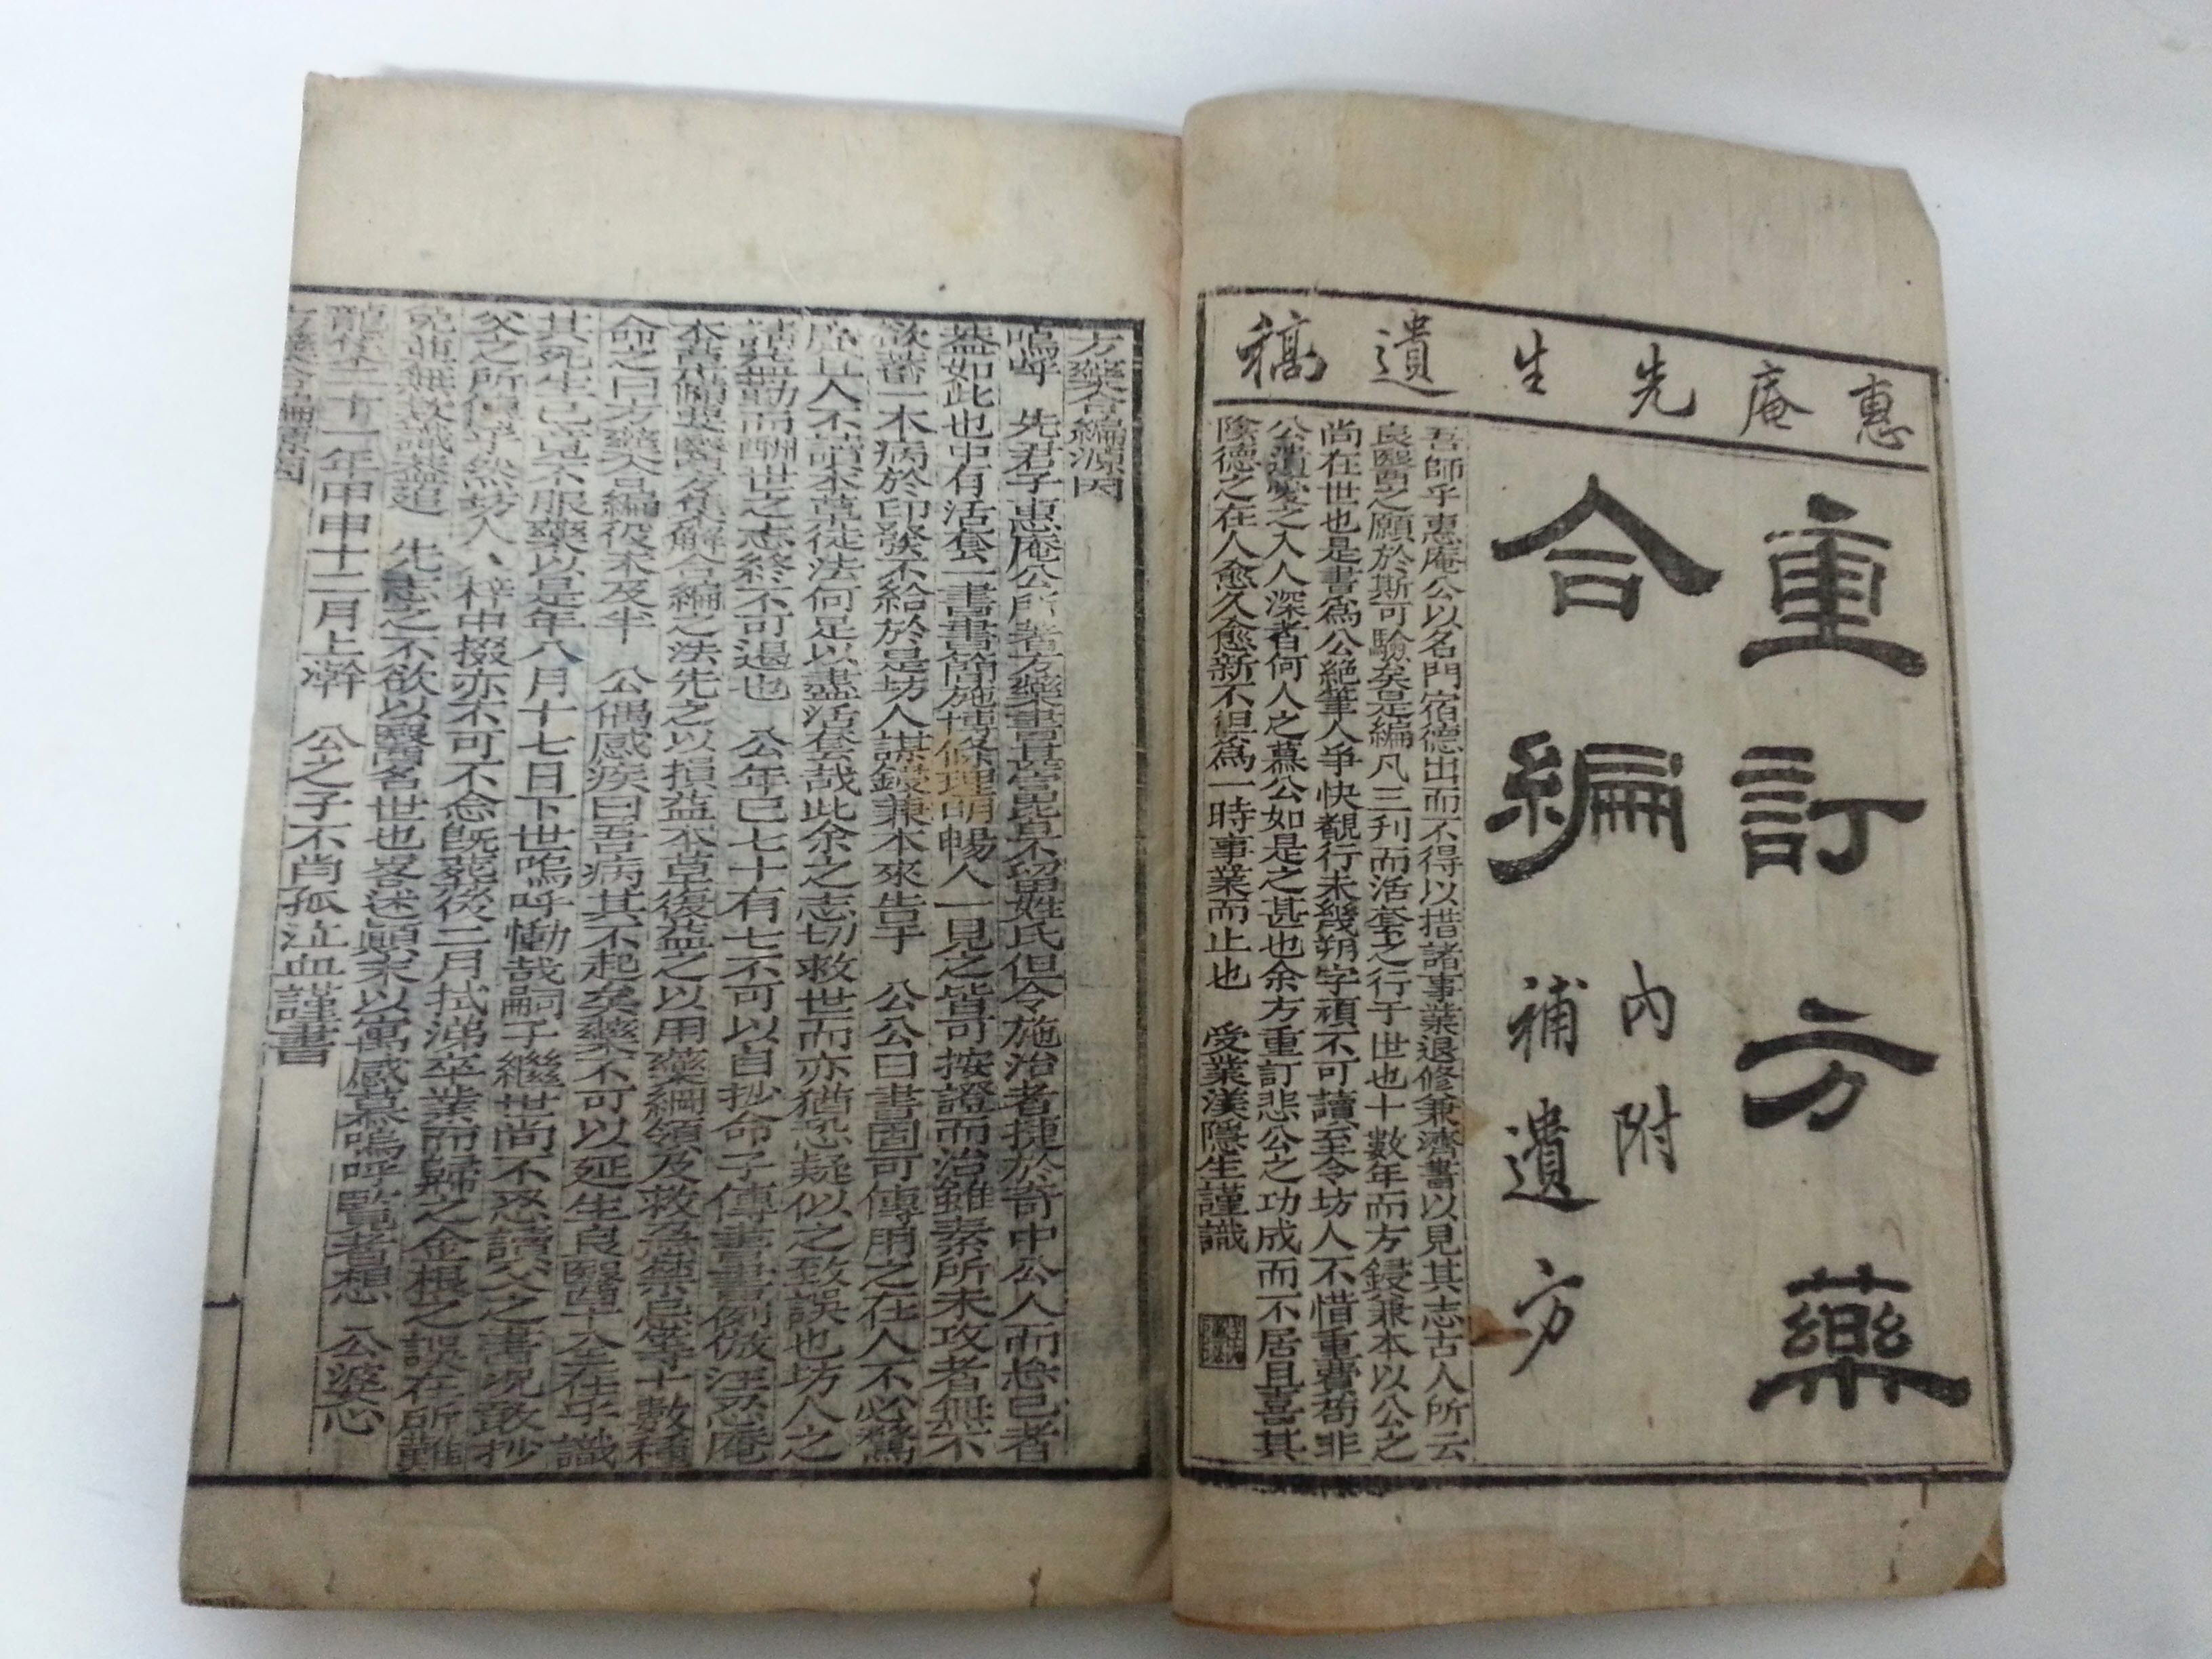 惠庵先生遺稿
重訂方藥
合編
內附
補遺方
吾師乎惠庵公以名門宿德出而不得以措諸事業退修兼濟書以見其志古人所云
良醫之願於斯可驗矣是編凡三刋而活套之行于世也十數年而方鋟兼本以公之
尚在世也是書爲公絶筆人爭快覩行未幾朔字頑不可讀至令坊人不惜重費苟非
公遺愛之入人深者何人之慕公如是之甚也余方重訂悲公之功成而不居且喜其
陰德之在人愈久愈新不但爲一時事業而止也 受業漢隱生謹識
方藥合編源因
嗚呼 先君子惠庵公所著方藥書甘營毘是不留姓氏但令施治者捷於奇中公人而忘己者
盖如此也中有活套一書書簡施博條理明暢人一見之皆可按證而治雖素所未攻者無不
欲蓄一本病於印發不給於是坊人謀鋟兼本來告于 公公曰書固可傳用之在人不必驚
座且人不讀本草徒法何足以盡活套哉此余之志切救世而亦猶恐疑似之致誤也坊人之
請益勤而酬世之志終不可遏也 公年已七十有七不可以自抄命子傳書書例倣汪忍庵
本草備要醫方集解合編之法先之以損益本草復益之以用藥綱領及救急禁忌等十數種
命之曰方藥合編役未及半 公偶感疾曰吾病其不起矣藥不可以延生良醫十全在乎識
其死生已竟不服藥以是年八月十七日下世嗚呼慟哉嗣子繼世尚不忍讀父之書況敢抄
父之所俾乎然坊人入梓中掇亦不可不念旣葬後二月拭涕卒業而歸之金根之誤在所難
免此無欲識益追 先志之不欲以醫名世也畧述顚末以寓感慕嗚呼覽者想 公婆心
龍集二十一年甲申十二月上澣 公之子不肖孤泣血謹書
方藥合編源因 一